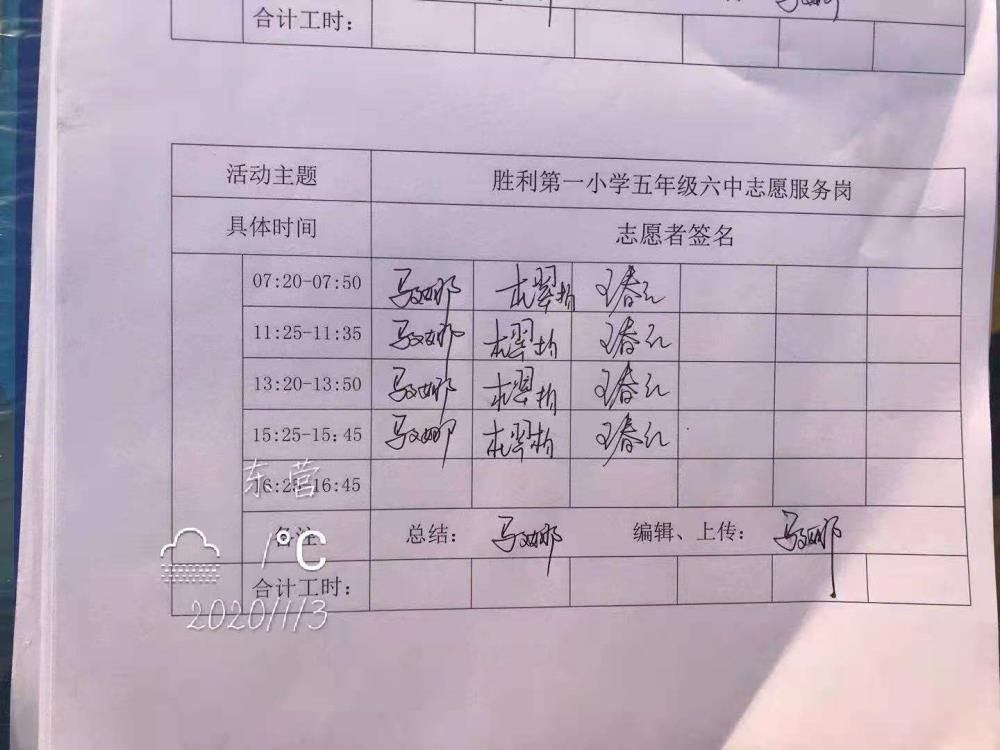 合计工时：
活动主题 胜利第一小学五年级六中志愿服务岗
具体时间 志愿者签名
07:20-07:50 马娜 王春红
11:25-11:35 马娜 王春红
13:20-13:50 马娜 王春红
15:25-15:45 马娜 王春红
16:25-16:45
备注 总结： 马娜 编辑、上传： 马娜
合计工时：
东营
1°C
2020/1/3